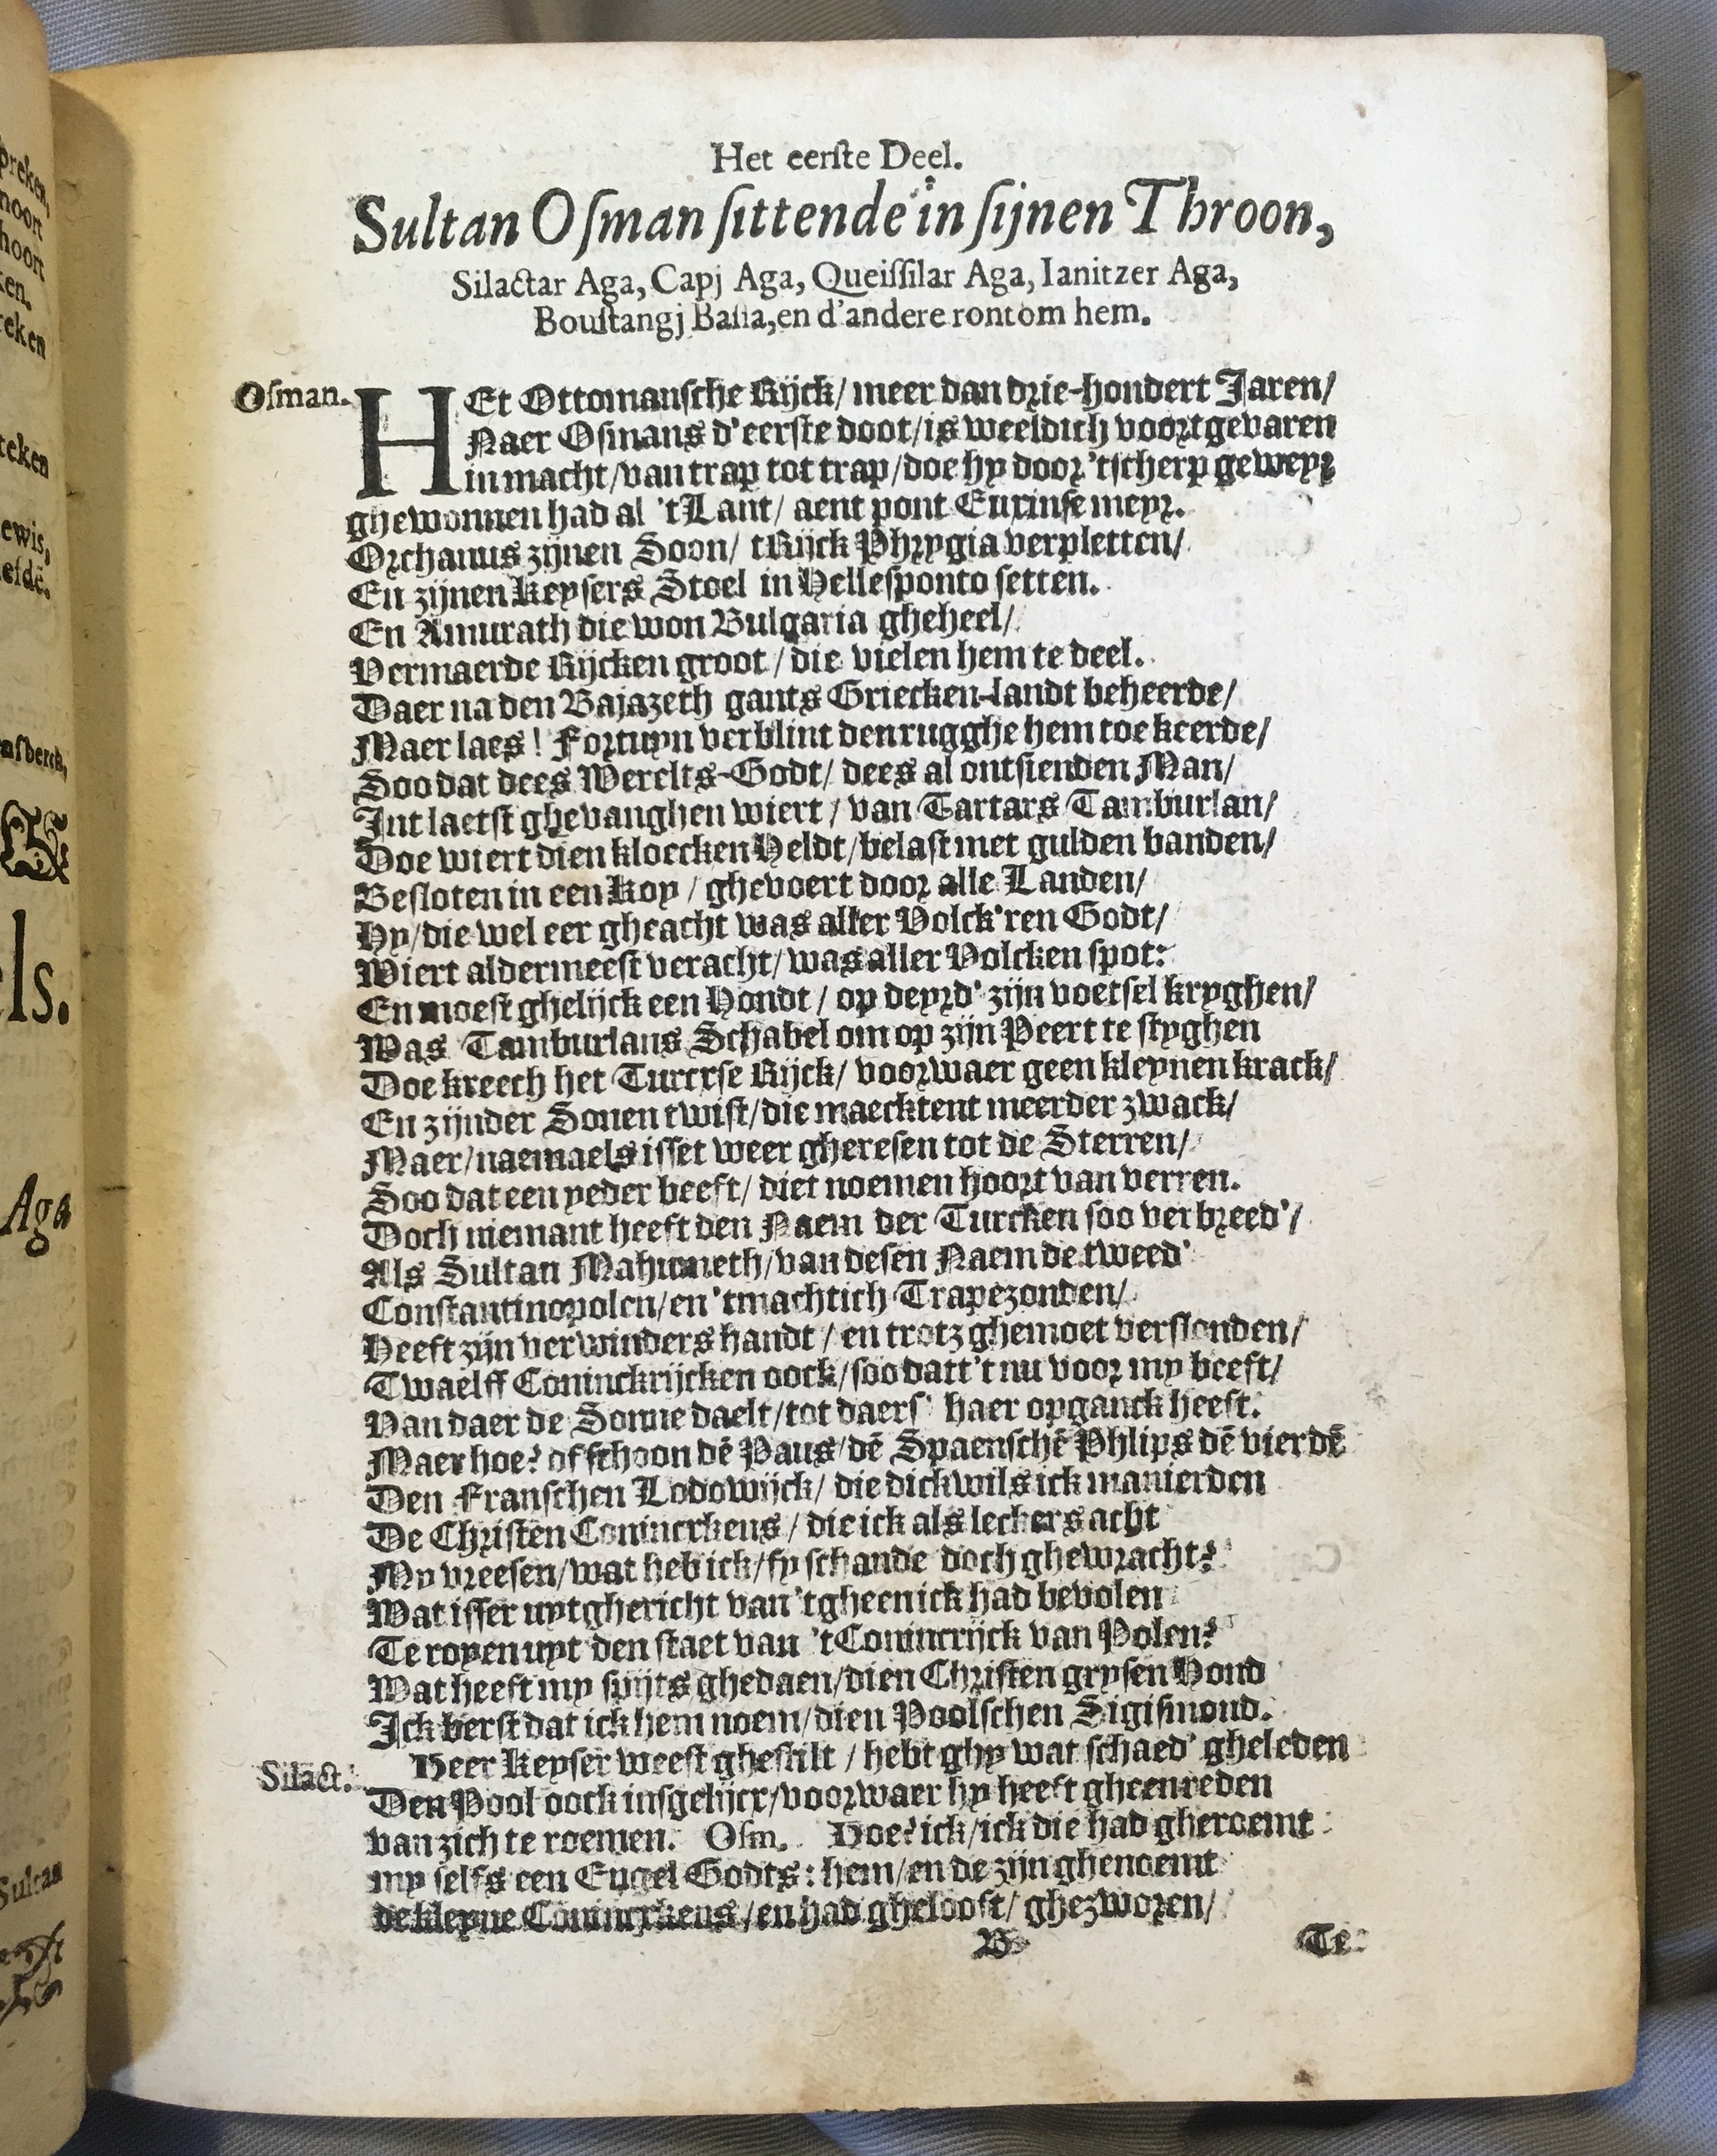 Het eerſte Deel.
Sultan Oſman ſittende in ſijnen Throon,
Silactar Aga, Capj Aga, Queiſſilar Aga, Ianitzer Aga,
Bouſtangj Baſſa, en d'andere rontom hem.
Oſman. HEt Ottomanſche Rijck / meer dan drie-hondert Jaren /
Naer Oſmans d'eerſte doot / is weeldich voortgevaren
in macht / van trap tot trap / doe hy door 'tſcherp geweyr
ghewonnen had al 't Lant / aent pont Euxinſe meyr.
Orchanus zijnen Soon / tRijck Phrygia verpletten /
En zijnen Keyſers Stoel in Helleſponto ſetten.
En Amurath die won Bulgaria gheheel /
Vermaerde Rijcken groot / die vielen hem te deel.
Daer na den Bajazeth gants Griecken-landt beheerde /
Maer laes! Fortuyn verblint den rugghe hem toe keerde /
Soo dat dees Werelts-Godt / dees al ontſienden Man /
Int laetſt ghevanghen wiert / van Tartars Tamburlan /
Doe wiert dien kloecken Heldt / belaſt met gulden banden /
Beſloten in een Koy / ghevoert door alle Landen /
Hy / die wel eer gheacht was aller Volck'ren Godt /
Wiert aldermeeſt veracht / was aller Volcken ſpot:
En moeſt ghelijck een Hondt / op d'eyrd' zijn voetſel kryghen /
Was Tamburlans Schabel om op zijn Peert te ſtyghen
Doe kreech het Turcxſe Rijck / voorwaer geen kleynen krack /
En zijnder Sonen twiſt / die maecktent meerder zwack /
Maer / naemaels iſſet weerghereſen tot de Sterren /
Soo dat een yeder beeft / diet noemen hoort van verren.
Doch niemant heeft den Naem der Turcken ſoo verbreed' /
Als Sultan Mahumeth / van deſen Naem de tweed'
Conſtantinopolen / en 'tmachtich Trapezonden /
Heeft zijn verwinders handt / en trotz ghemoet verſlonden /
Twaelff Coninckrijcken oock / ſoo datt't nu voor my beeft /
Van daer de Sonne daelt / tot daerſ' haer opganck heeft.
Maer hoe? of ſchoon dē Paus / dē Spaenſchē Phlips dē vierdē
Den Franſchen Lodowijck / die dickwils ick manierden
De Chriſten Conincxkens / die ick als leckers acht
My vreeſen / wat heb ick / fy ſchande doch ghewracht?
Wat iſſer uytghericht van 'tgheen ick had bevolen
Te royen uyt den ſtaet van 't Conincrijck van Polen?
Wat heeft my ſpijts ghedaen / dien Chriſten gryſen Hond
Ick berſt dat ick hem noem / dien Poolſchen Sigiſmond.
Silact. Heer Keyſer weeſt gheſtilt / hebt ghy wat ſchaed' gheleden
Den Pool oock inſgelijcx / voorwaer hy heeft gheen reden
van zich te roemen. Oſm. Hoe? ick / ick die had gheroemt
my ſelfs een Engel Godts: hem / en de zijn ghenoemt
de kleyne Conincxkens / en had ghelooft / ghezworen /
B Te